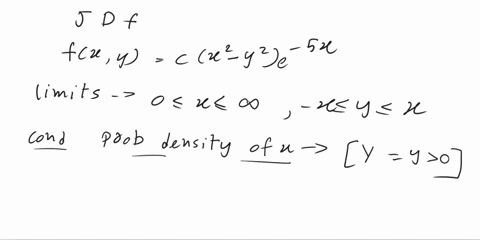 J D f
f(x, y) = c (x² - y²) e^{-5x}
limits -> 0 ≤ x ≤ ∞ , -x ≤ y ≤ x
cond prob density of x -> [Y = y > 0]